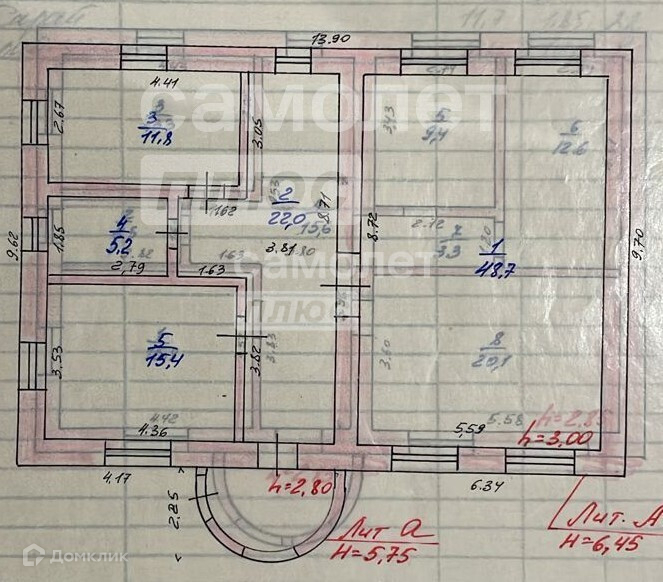 11,7
1.85
13.90
4.41
3
11,8
2.67
3.05
самолет
плюс
3,43
5
9,4
6
12.6
1.62
2
22,0
15,6
8.71
8.72
2.72
7
3.3
1
48,7
9.62
1.85
4
5,2
2,79
1.63
1.63
3.81
9,70
самолет
плюс
3.53
5
15,4
3.82
3.83
3.60
8
20,1
4.72
4.36
5,59
5.58
H=2,85
h=3,00
4.17
2.85
h=2,80
6.34
Лит а
H=5,75
Лит. А
H=6,45
Домклик